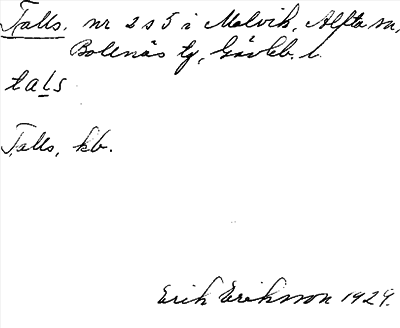 Talls. nr 2 o 5 i Malvik, Alfta sn,
Bollnäs tg, Gävleb. l.
tals
Talls, kb.
Erik Eriksson 1929.